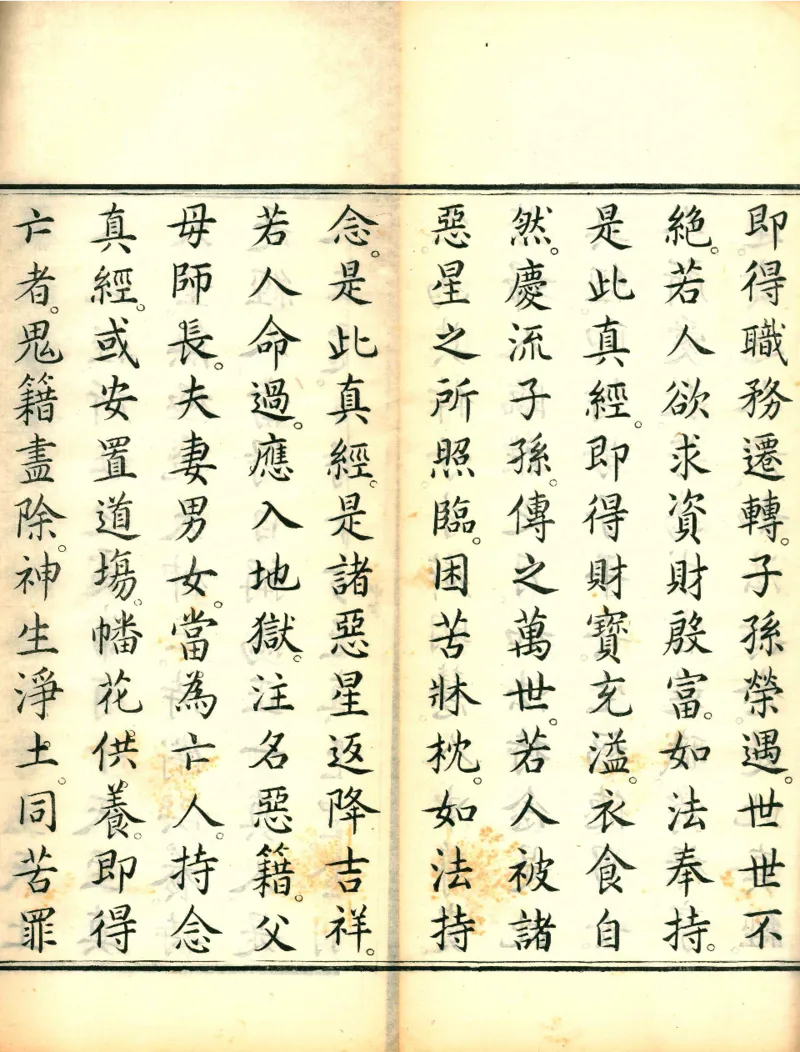 即得職務遷轉。子孫榮遇。世世不
絕。若人欲求資財殷富。如法奉持。
是此真經。即得財寳充溢。衣食自
然。慶流子孫。傳之萬世。若人被諸
惡星之所照臨。困苦牀枕。如法持
念。是此真經。是諸惡星返降吉祥。
若人命過。應入地獄。注名惡籍。父
母師長。夫妻男女。當為亡人。持念
真經。或安置道塲。幡花供養。即得
亡者。鬼籍盡除。神生淨土。同苦罪